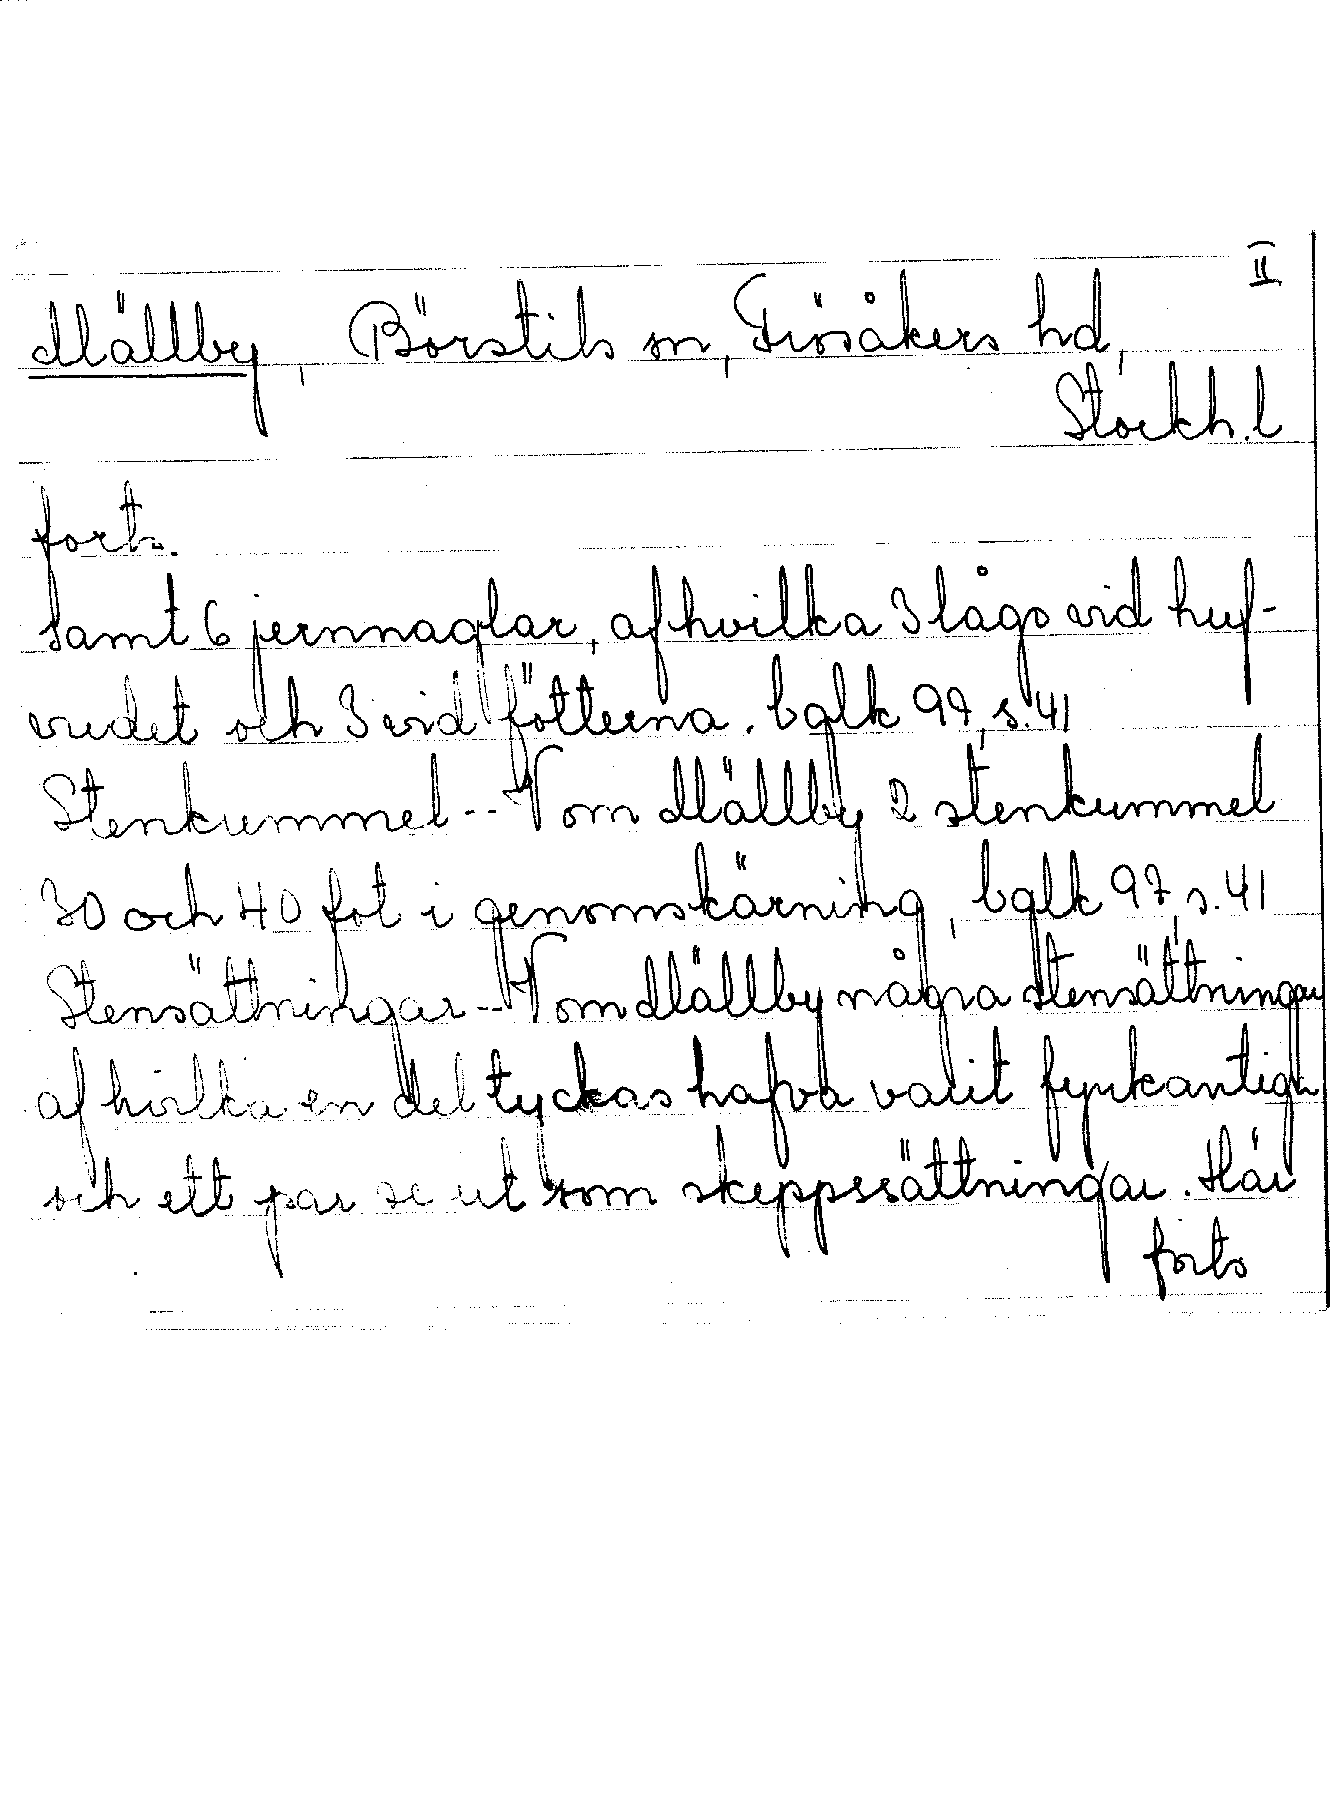 II
Mällby, Börstils sn, Frösåkers hd,
Stockh. l
forts.
samt 6 jernnaglar, af hvilka 3 lågo vid huf-
vudet och 3 vid fötterna. bglk 97, s. 41
Stenkummel -- V om Mällby 2 stenkummel
30 och 40 fot i genomskärning, bglk 97, s. 41
Stensättningar -- V om Mällby några stensättningar
af hvilka en del tyckas hafva varit fyrkantiga
och ett par se ut som skeppssättningar. Här
forts